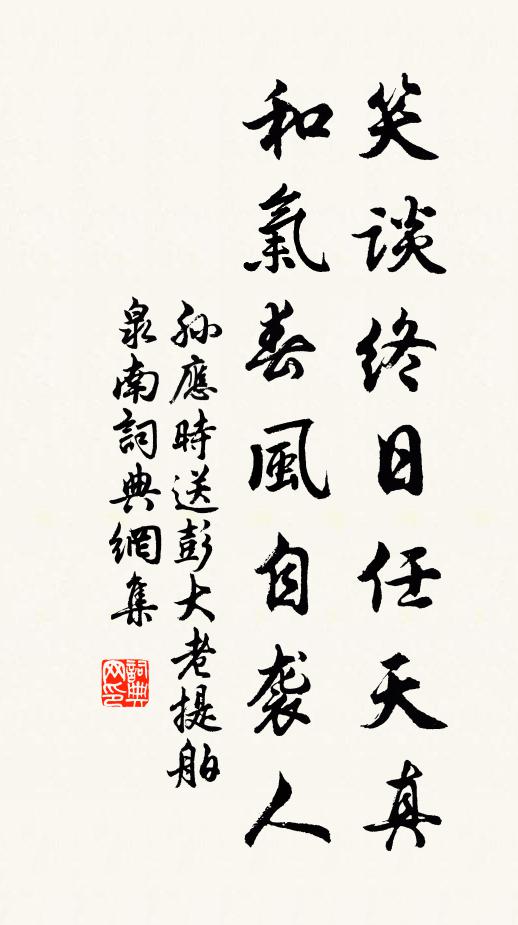 笑談終日任天真
和氣春風自袭人
孫應時送彭大老提舶
泉南詞典網集
詞典网印